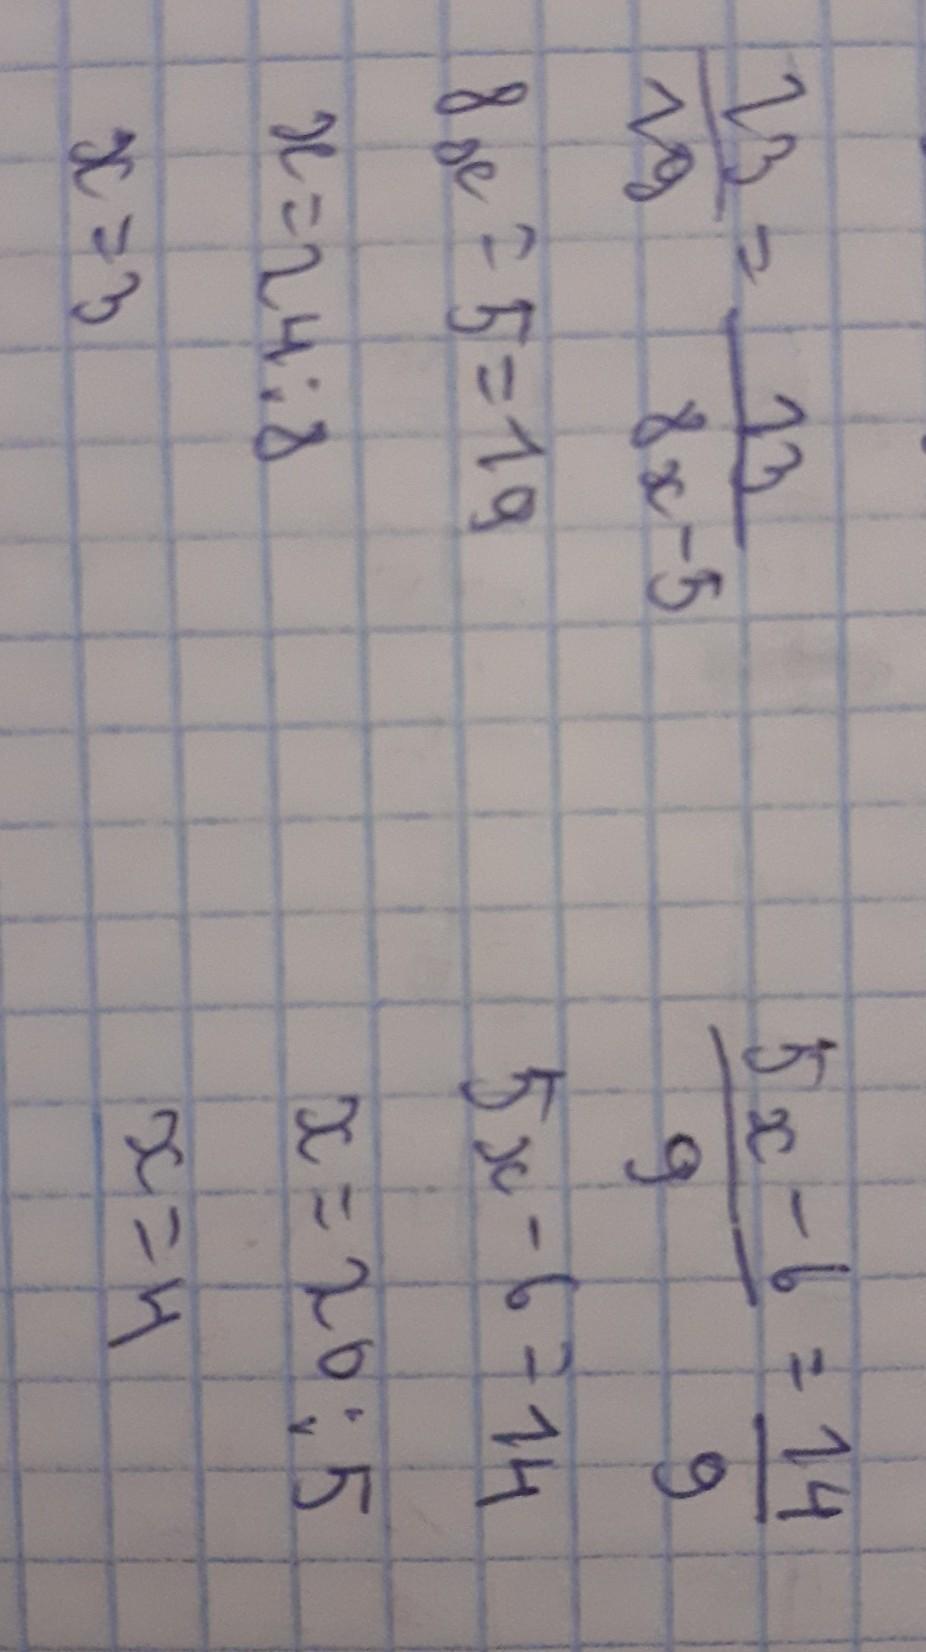 13/19 = 13/(8x-5)
8x - 5 = 19
x = 24 : 8
x = 3
(5x - 6)/9 = 14/9
5x - 6 = 14
x = 20 : 5
x = 4